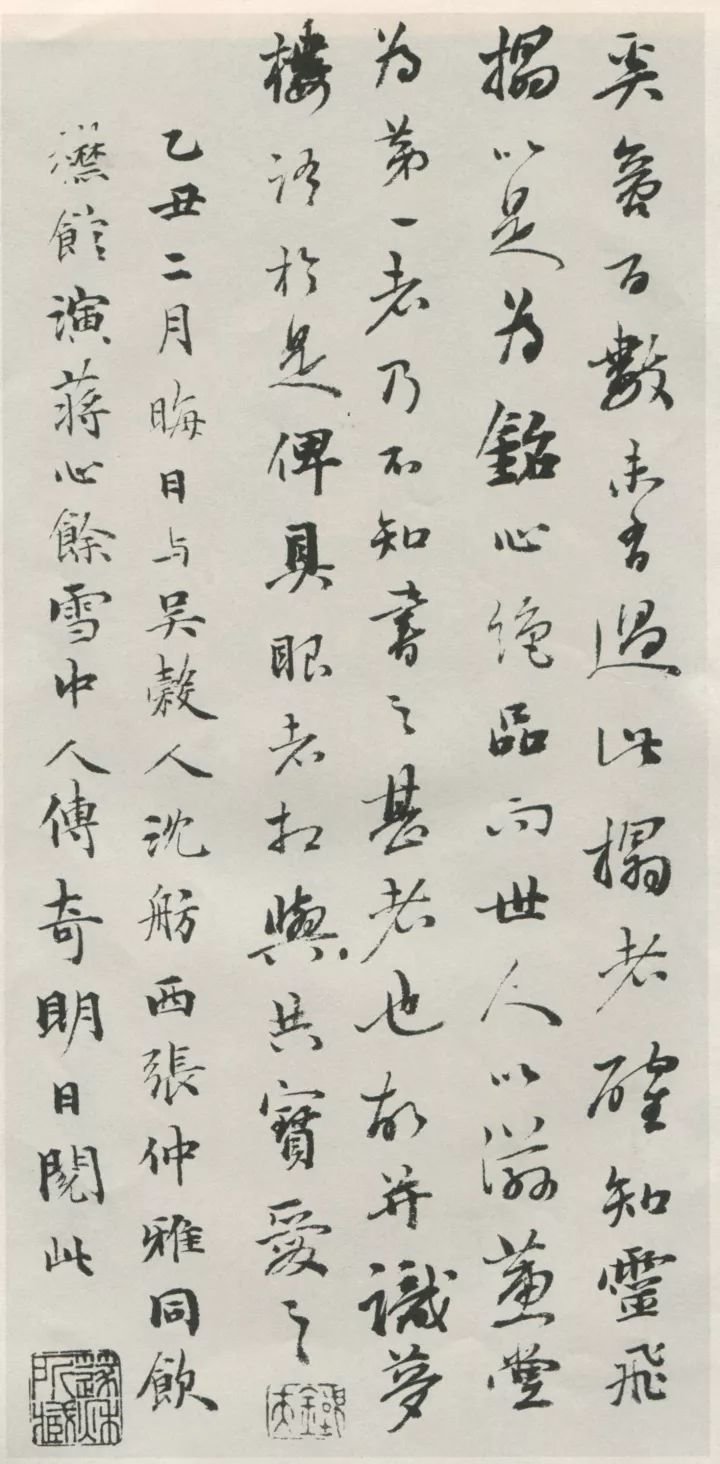 奚啻百數未有過此搨者確知靈飛
搨以是為銘心絕品而世人以滋蕙堂
為第一者乃不知書之甚者也故并識夢
樓語於是俾具眼者相與共寶愛之
乙丑二月晦日与吴穀人沈舫西張仲雅同飲
館演蔣心餘雪中人傳奇明日閱此